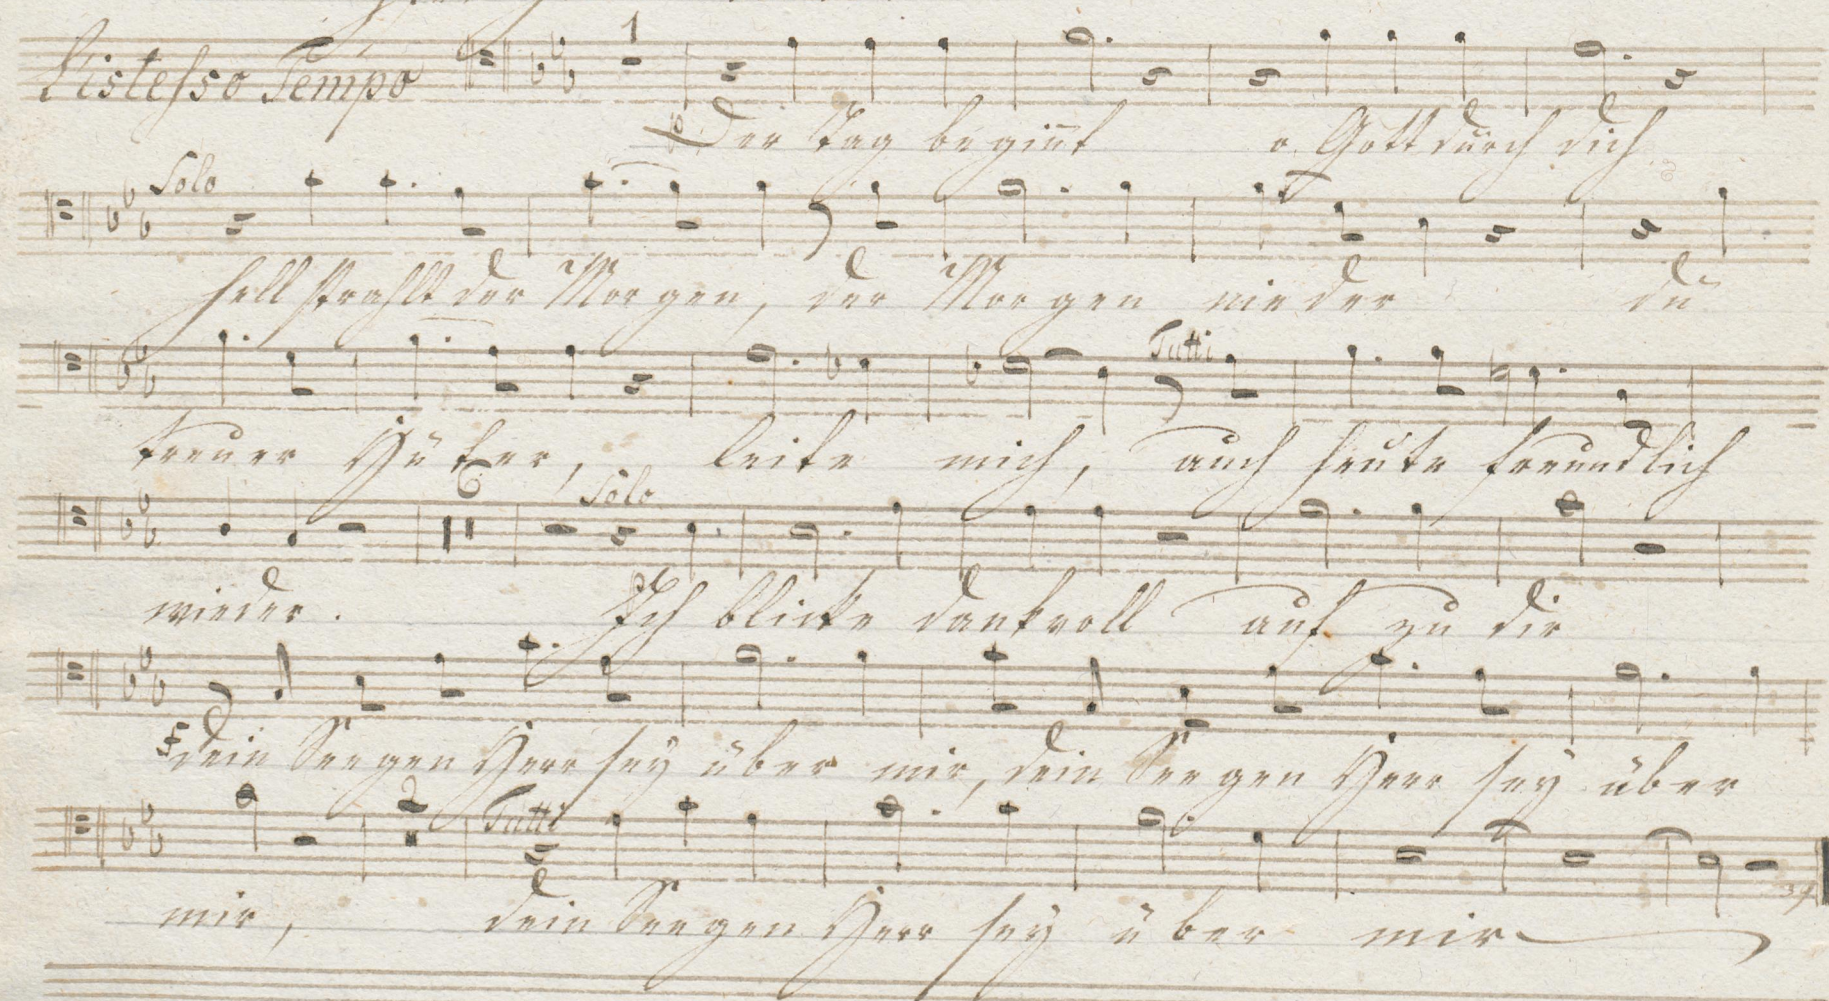 1
L'istesso Tempo
p Der Tag beginnt o Gott durch dich
Solo
hell strahlt der Morgen, der Morgen nieder du
Tutti
treuer Hüter, leite mich, auch heute freundlich
6 Solo
wieder. Ich blicke dankvoll auf zu dir
f dein Seegen Herr sey über mir, dein Seegen Herr sey über
2 Tutti
mir, dein Seegen Herr sey über mir